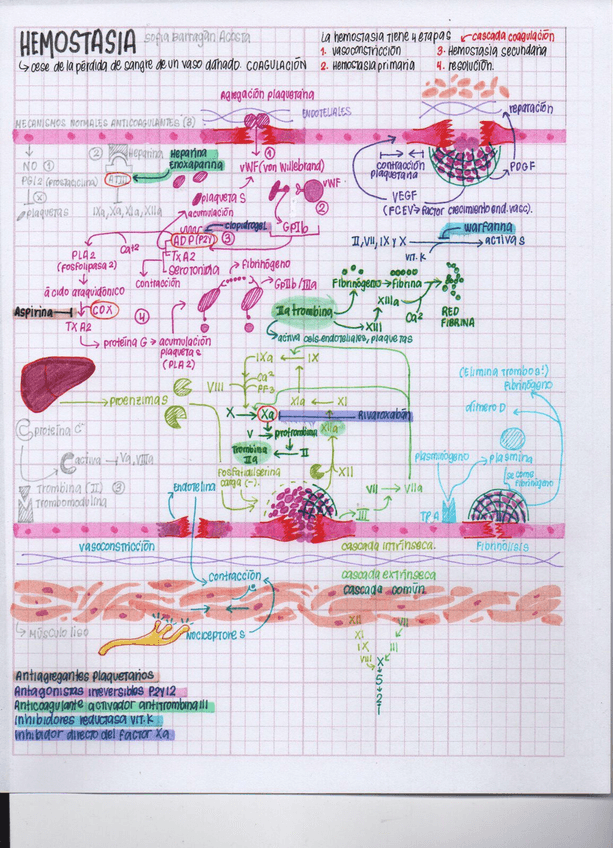 HEMOSTASIA
Sofia Barragán Acosta
↳ cese de la pérdida de sangre de un vaso dañado. COAGULACIÓN
La hemostasia tiene 4 etapas
cascada coagulación
1. vasoconstricción
3. Hemostasia secundaria
2. Hemostasia primaria
4. resolución.
MECANISMOS NORMALES ANTICOAGULANTES (3)
Agregación plaquetaria
ENDOTELIALES
reparación
NO ①
PGI2 (prostaciclina)
plaquetas
② Heparina
ATIII
IXa, Xa, XIa, XIIa
Heparina
enoxaparina
①
vWF (von Willebrand)
plaquetas
acumulación
vWF
②
GPIb
clopidrogel
ADP (P2Y) ③
TxA2
serotonida
contracción
Ca²⁺
PLA2
(fosfolipasa 2)
ácido araquidónico
Aspirina
COX
④
TXA2
proteína G → acumulación
plaquetas
(PLA2)
fibrinógeno
GpIIb/IIIa
contracción
plaquetaria
PDGF
VEGF
(FCEV) → factor crecimiento end. vasc.)
warfarina
II, VII, IX y X → activas
vit. K
Fibrinógeno → fibrina
IIa trombina
XIII
XIIIa
Ca²⁺
RED
FIBRINA
activa cels. endoteliales, plaquetas
proenzimas
VIII
IXa
IX
Ca²⁺
PF3
XIa
XI
X
Xa
Rivaroxabán
V
protrombina
XIIa
Trombina
IIa
II
Fosfatidilserina
carga (-).
XII
VII
VIIa
III
(Elimina trombos!)
Fibrinógeno
dímero D
plasminógeno
plasmina
se come
fibrinógeno
TPA
proteína C
C activa ⊣ Va, VIIIa
Trombina (II) ③
Trombomodulina
Endotelina
vasoconstricción
cascada intrínseca.
Fibrinólisis
contracción
cascada extrínseca
cascada común
MÚSCULO liso
Nociceptores
XII
VII
XI
IX
III
VIII
X
5
2
1
Antiagregantes Plaquetarios
Antagonistas irreversibles P2Y12
Anticoagulante activador antitrombina III
Inhibidores reductasa VIT. K
Inhibidor directo del factor Xa